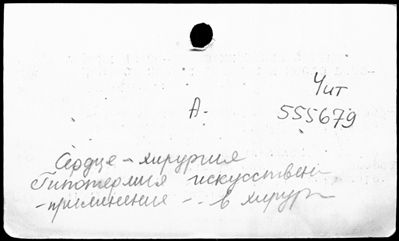 Чит
А.
555679
Сердце - хирургия
Гипотермия искусствен
- применение - - в хирург